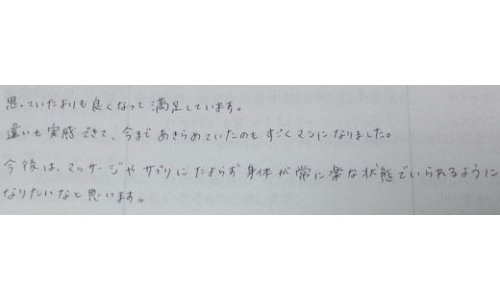 思っていたよりも良くなって満足しています。
違いも実感できて、今まであきらめていたのもすごくマシになりました。
今後は、マッサージやサプリにたよらず身体が常に楽な状態でいられるように
なりたいなと思います。